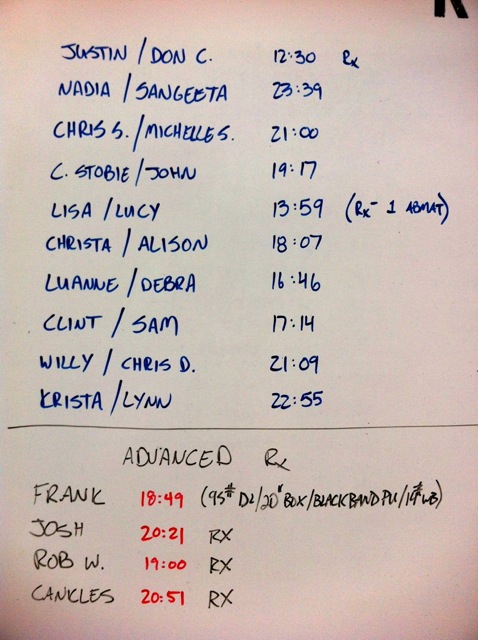 JUSTIN / DON C. 12:30 Rx
NADIA / SANGEETA 23:39
CHRIS S. / MICHELLE S. 21:00
C. STOBIE / JOHN 19:17
LISA / LUCY 13:59 (Rx - 1 ABMAT)
CHRISTA / ALISON 18:07
LUANNE / DEBRA 16:46
CLINT / SAM 17:14
WILLY / CHRIS D. 21:09
KRISTA / LYNN 22:55
ADVANCED Rx
FRANK 18:49 (95# DL/20" BOX/BLACK BAND PU/14# WB)
JOSH 20:21 RX
ROB W. 19:00 RX
CANKLES 20:51 RX